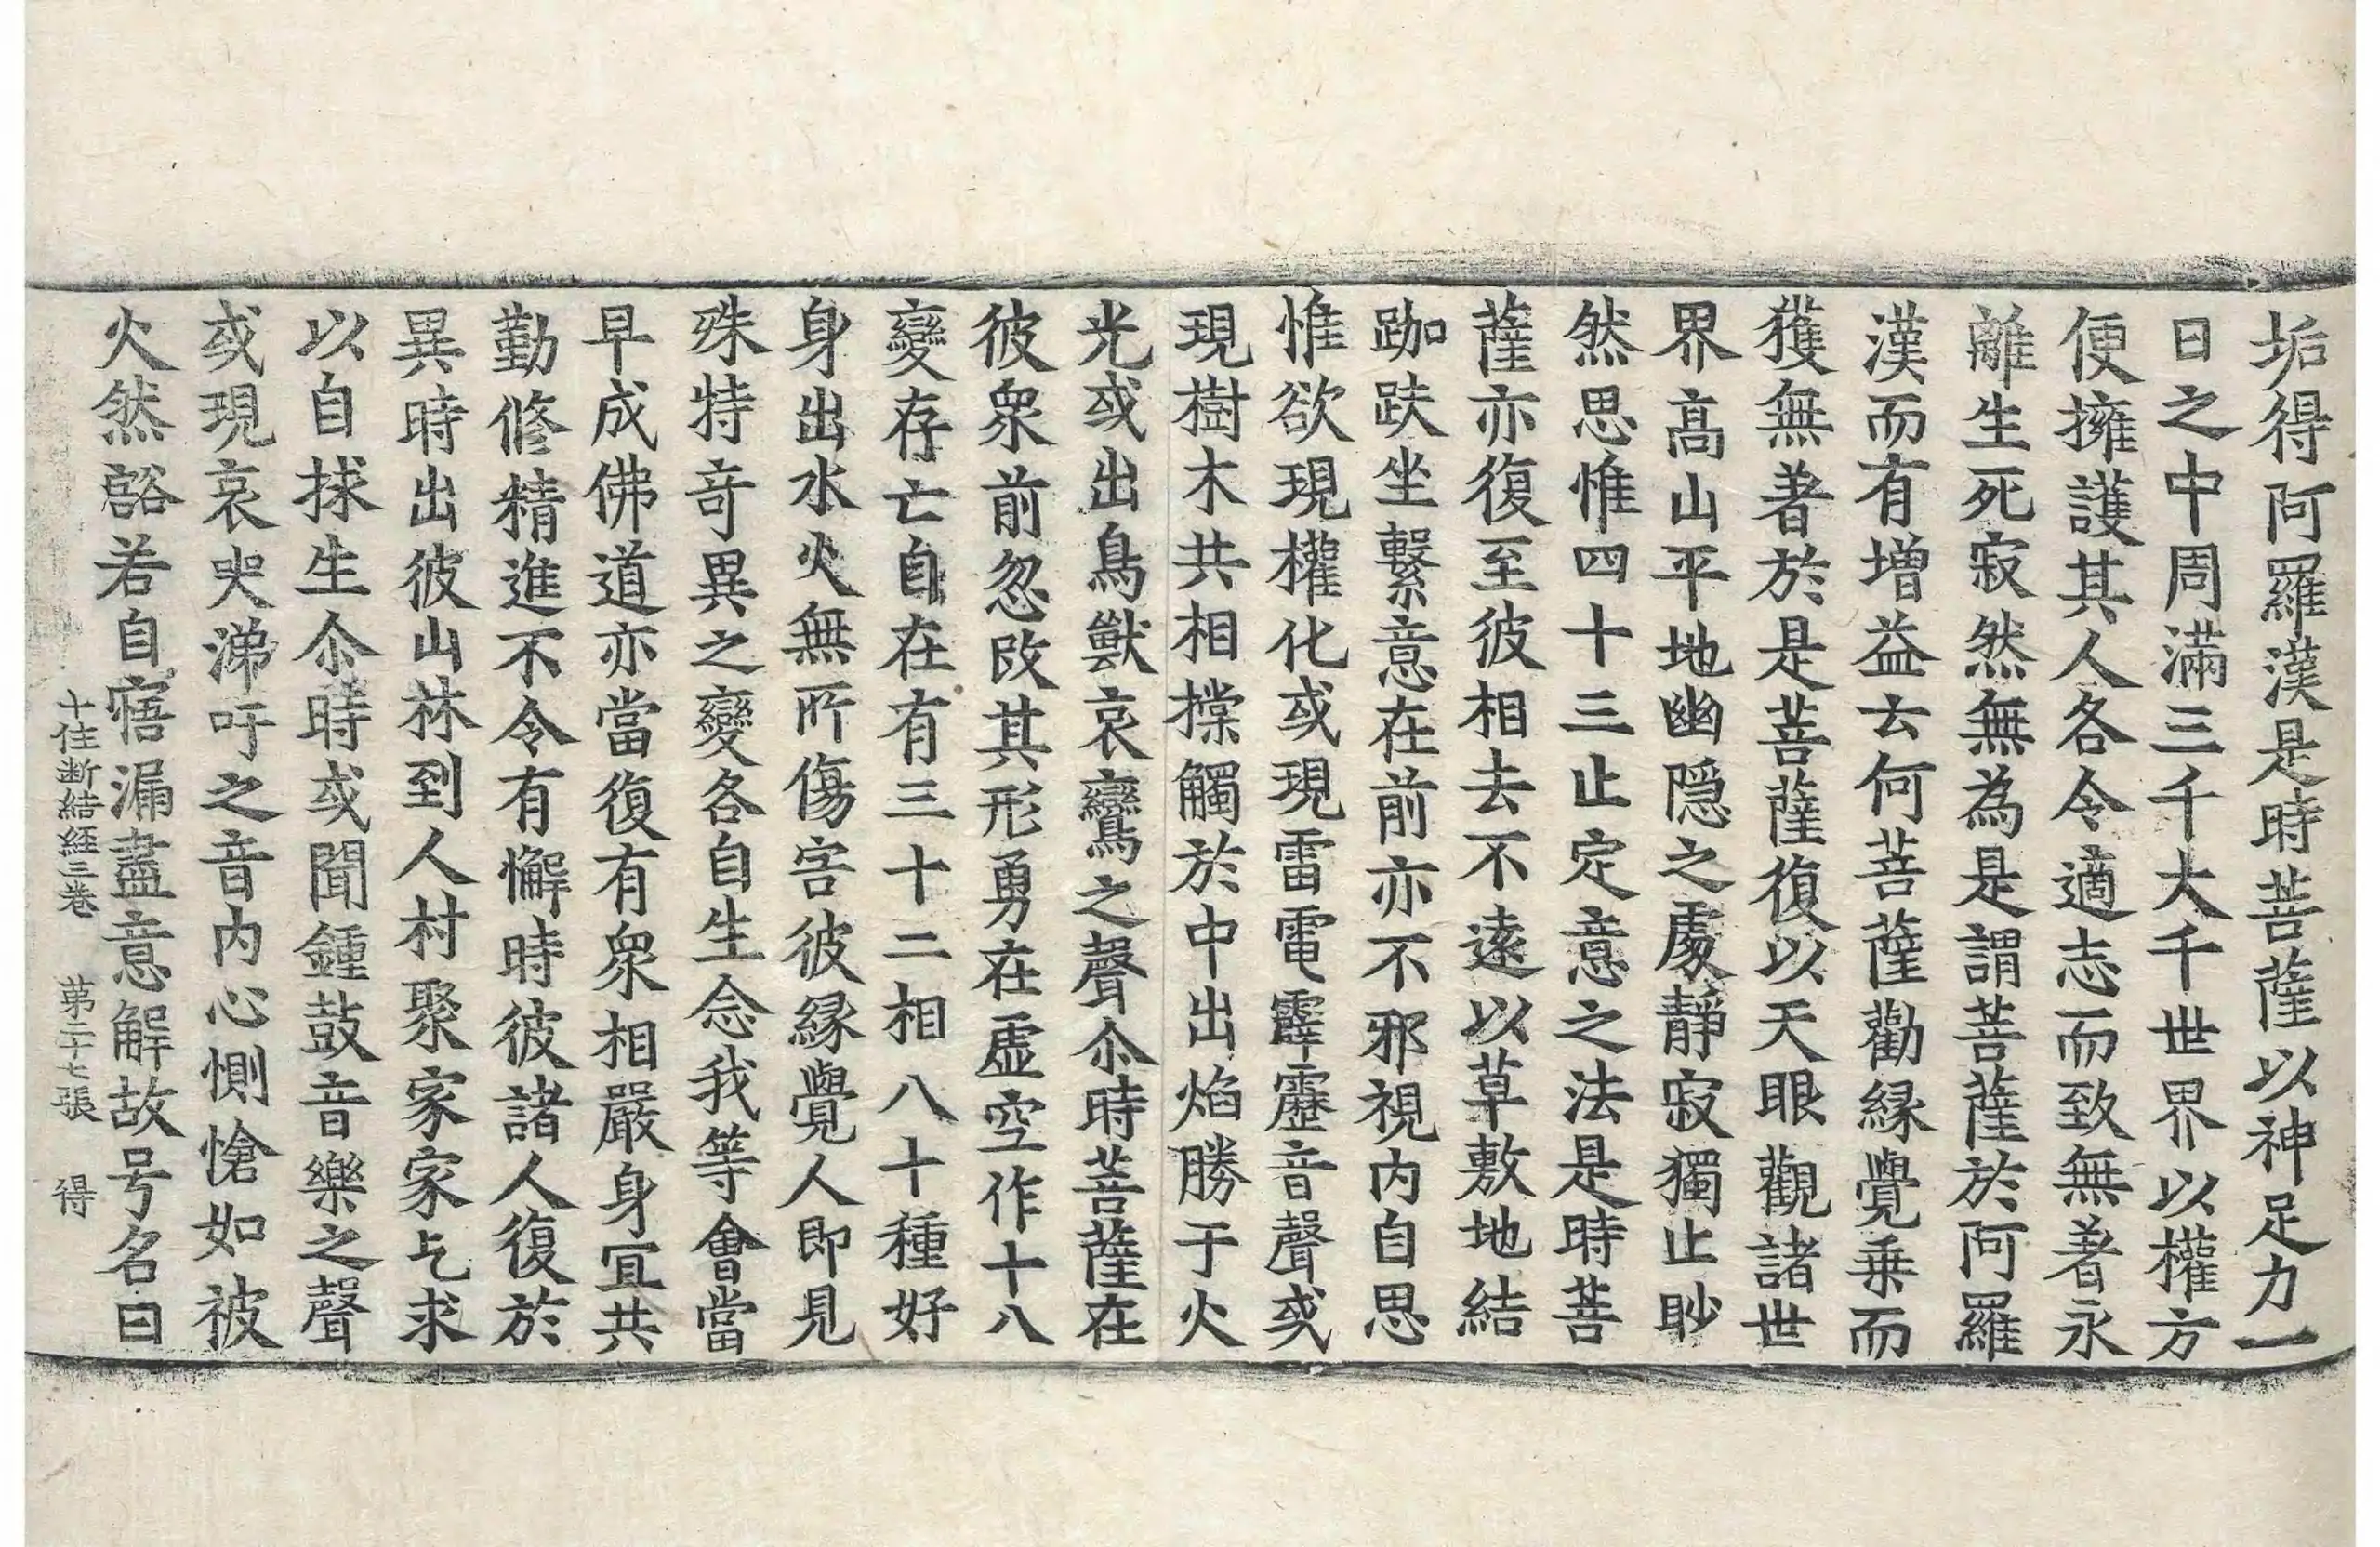 垢得阿羅漢是時菩薩以神足力一
日之中周滿三千大千世界以權方
便擁護其人各令適志而致無著永
離生死寂然無為是謂菩薩於阿羅
漢而有增益云何菩薩勸縁覺乗而
獲無著於是菩薩復以天眼觀諸世
界高山平地幽隠之處靜寂獨止眇
然思惟四十三止定意之法是時菩
薩亦復至彼相去不遠以草敷地結
跏趺坐繫意在前亦不邪視内自思
惟欲現權化或現雷電霹靂音聲或
現樹木共相摚觸於中出焰勝于火
光或出鳥獸哀鸞之聲尒時菩薩在
彼衆前忽改其形勇在虛空作十八
變存亡自在有三十二相八十種好
身出水火無所傷害彼縁覺人即見
殊特竒異之變各自生念我等會當
早成佛道亦當復有衆相嚴身冝共
勤修精進不令有懈時彼諸人復於
異時出彼山林到人村聚家家乞求
以自捄生尒時或聞鍾鼓音樂之聲
或現哀哭涕吁之音内心惻愴如被
火然豁若自寤漏盡意解故号名曰
十住断結経三卷 苐二十七張 得